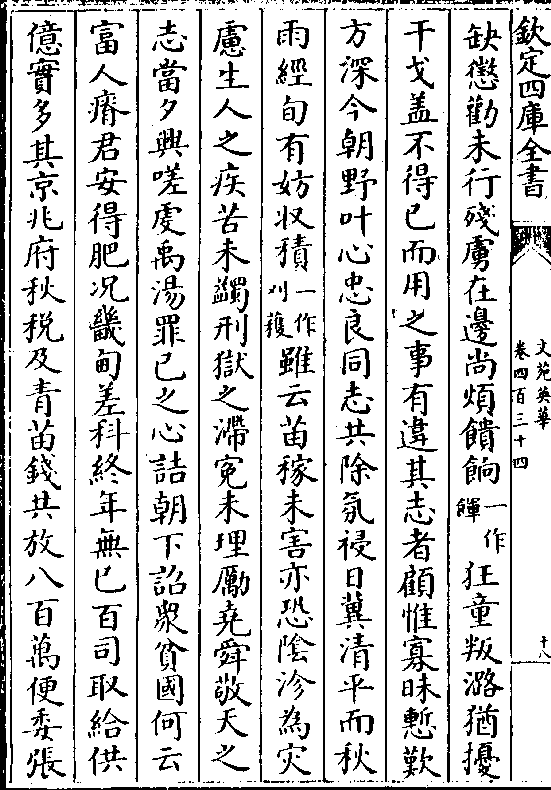 欽定四庫全書
文苑英華
卷四百三十四
十八
缺懲勸未行殘虜在邊尚煩饋餉一作餫狂童叛潞猶擾
干戈盖不得已而用之事有違其志者顧惟寡昧慙歎
方深今朝野叶心忠良同志共除氛祲日冀清平而秋
雨經旬有妨收積一作刈穫雖云苗稼未害亦恐陰沴為灾
慮生人之疾苦未蠲刑獄之滯寃未理勵堯舜敬天之
志當夕興嗟虔禹湯罪已之心詰朝下詔衆貧國何云
富人瘠君安得肥况畿甸差科終年無已百司取給供
億實多其京兆府秋税及青苗錢共放八百萬便委張